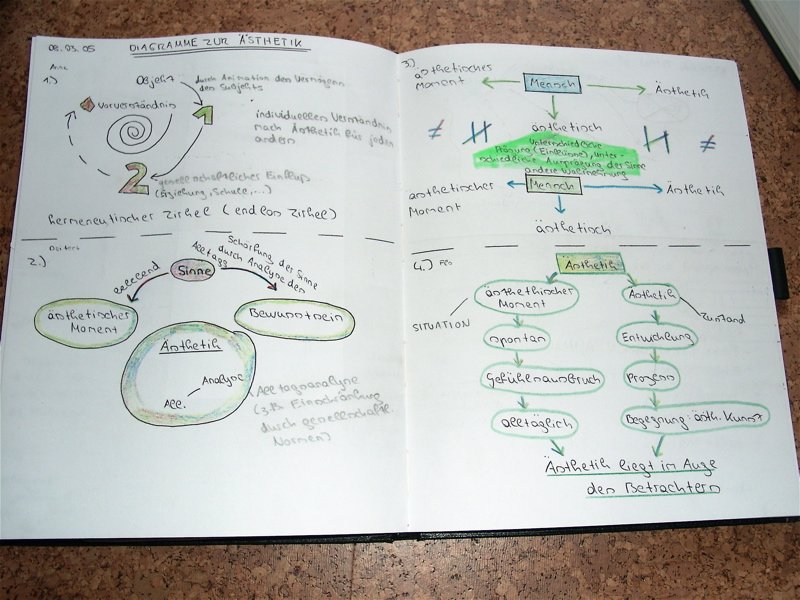 08.03.05
DIAGRAMME ZUR ÄSTHETIK
1.)
Objekt
durch Animation des Vermögens
des Subjekts
Vorverständnis
1
individuelles Verständnis
nach Ästhetik für jeden
anders
2
gesellschaftlicher Einfluß
(Erziehung, Schule,...)
hermeneutischer Zirkel (endlos Zirkel)
2.)
reflektiert
Sinne
Schärfung der Sinne
durch Analyse des
Alltags
ästhetischer
Moment
Bewusstsein
Ästhetik
Analyse
All.
Alltagsanalyse
(z.B. Einschränkung
durch gesellschaftl.
Normen)
3.)
ästhetisches
Moment
Mensch
Ästhetik
ästhetisch
≠
≠
unterschiedliche
Prägung (Einflüsse), unter-
schiedliche Ausprägung der Sinne
andere Wahrnehmung
ästhetischer
Moment
Mensch
Ästhetik
ästhetisch
4.)
Ästhetik
ästhethischer
Moment
Ästhetik
SITUATION
Zustand
spontan
Entwicklung
Gefühlsausbruch
Prozess
alltäglich
Begegnung: ästh. Kunst
Ästhetik liegt im Auge
des Betrachters